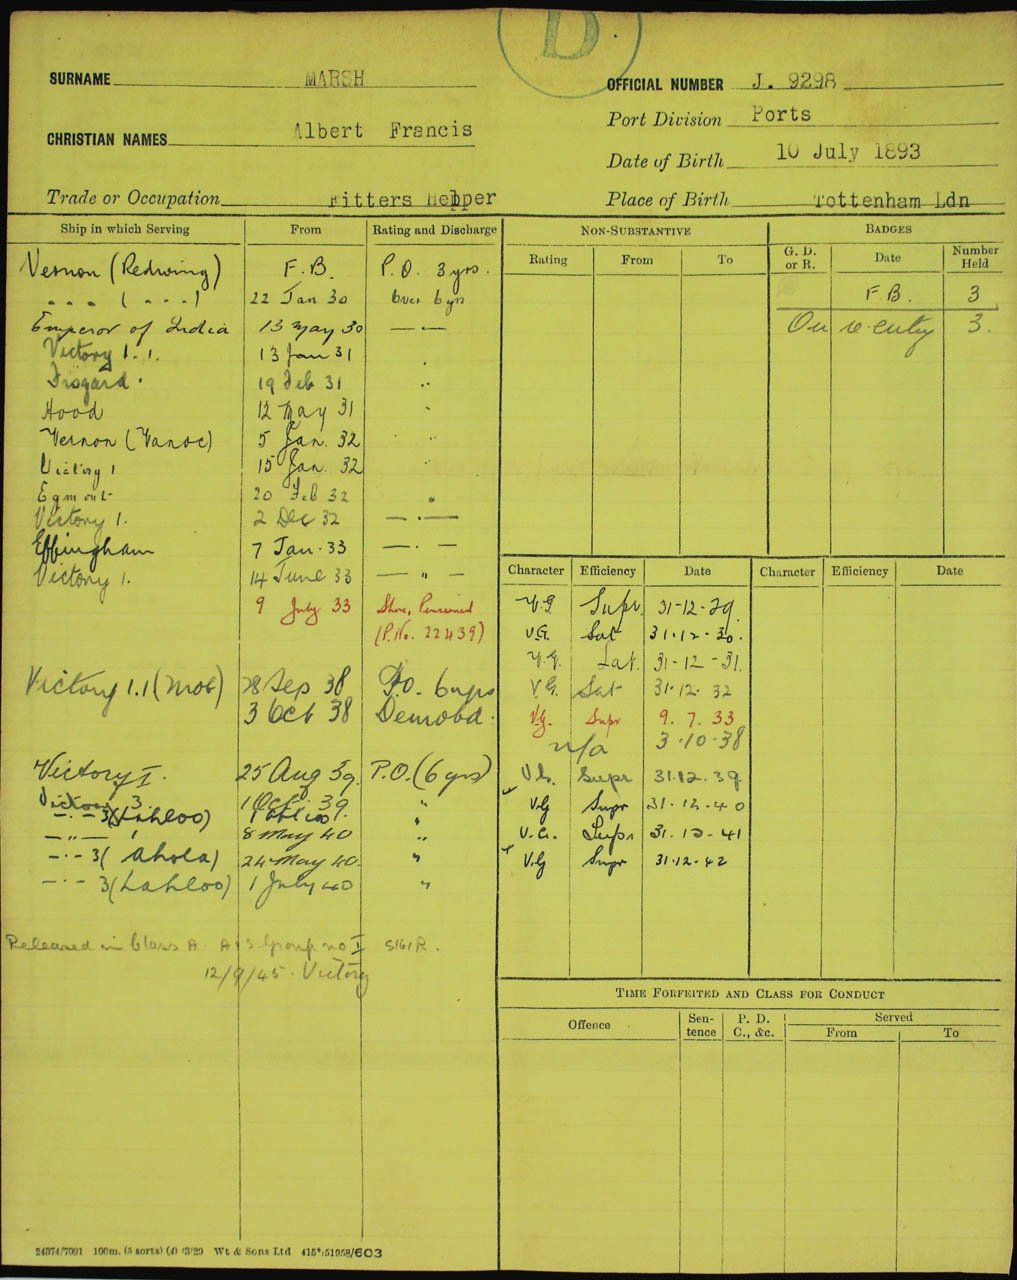 D
SURNAME MARSH
OFFICIAL NUMBER J. 9298
CHRISTIAN NAMES Albert Francis
Port Division Ports
Date of Birth 10 July 1893
Trade or Occupation Fitters Helpper
Place of Birth Tottenham Ldn
Ship in which Serving From Rating and Discharge
Vernon (Redwing) F.B. P.O. 3 yrs.
" " " ( " " " ) 22 Jan 30 Over 6 yrs
Emperor of India 13 May 30 — " —
Victory 1.1. 13 Jan 31 "
Fisgard. 19 Feb 31 "
Hood 12 May 31 "
Vernon (Vanoc) 5 Jan. 32 "
Victory 1 15 Jan. 32 "
Egmont 20 Feb 32 "
Victory 1. 2 Dec 32 — " —
Effingham 7 Jan. 33 — " —
Victory 1. 14 June 33 — " —
9 July 33 Shore, Pensioned
(P.No. 22439)
Victory 1.1 (mob) 28 Sep 38 P.O. 6 yrs
3 Oct 38 Demobd.
Victory I. 25 Aug 39. P.O. (6 yrs)
Victory 3. 1 Oct. 39. "
— " — 3 (Lahloo) "
— " — 8 May 40 "
— " — 3 ( Ahola) 24 May 40. "
— " — 3 (Lahloo) 1 July 40 "
Released in Class A A/S Group no I
12/9/45. Victory
24374/7091 100m. (5 sorts) Wt & Sons Ltd 415*/51058/603
NON-SUBSTANTIVE
Rating From To
BADGES
G. D. or R. Date Number Held
F.B. 3
On re-entry 3.
Character Efficiency Date Character Efficiency Date
V.G Supr. 31-12-29.
V.G. Sat 31.12-30.
V.G. Sat. 31-12-31.
V.G. Sat 31.12.32
V.G. Supr 9.7.33
n/a 3.10.38
V.G. Supr 31.12.39
V.G Supr 31-12-40
V.G. Supr 31.12-41
V.G Supr 31.12-42
TIME FORFEITED AND CLASS FOR CONDUCT
Offence Sen-tence P. D. C., &c. Served
From To